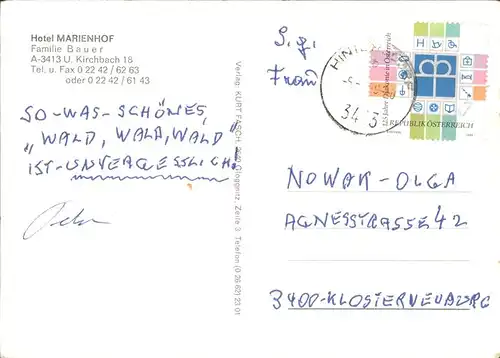 Hotel MARIENHOF
Familie Bauer
A-3413 U. Kirchbach 18
Tel. u. Fax 0 22 42 / 62 63
oder 0 22 42 / 61 43
SO-WAS-SCHÖNES,
"WALD, WALD, WALD"
IST-UNVERGESSLICH.
Verlag KURT FASCH,
Gloggnitz, Zeile 3 Telefon (0 26 62) 23 01
S.g.
Frau
125 Jahre Diakonie in Österreich
REPUBLIK ÖSTERREICH
NOWAK-OLGA
AGNESSTRASSE 42
3400-KLOSTERNEUBURG